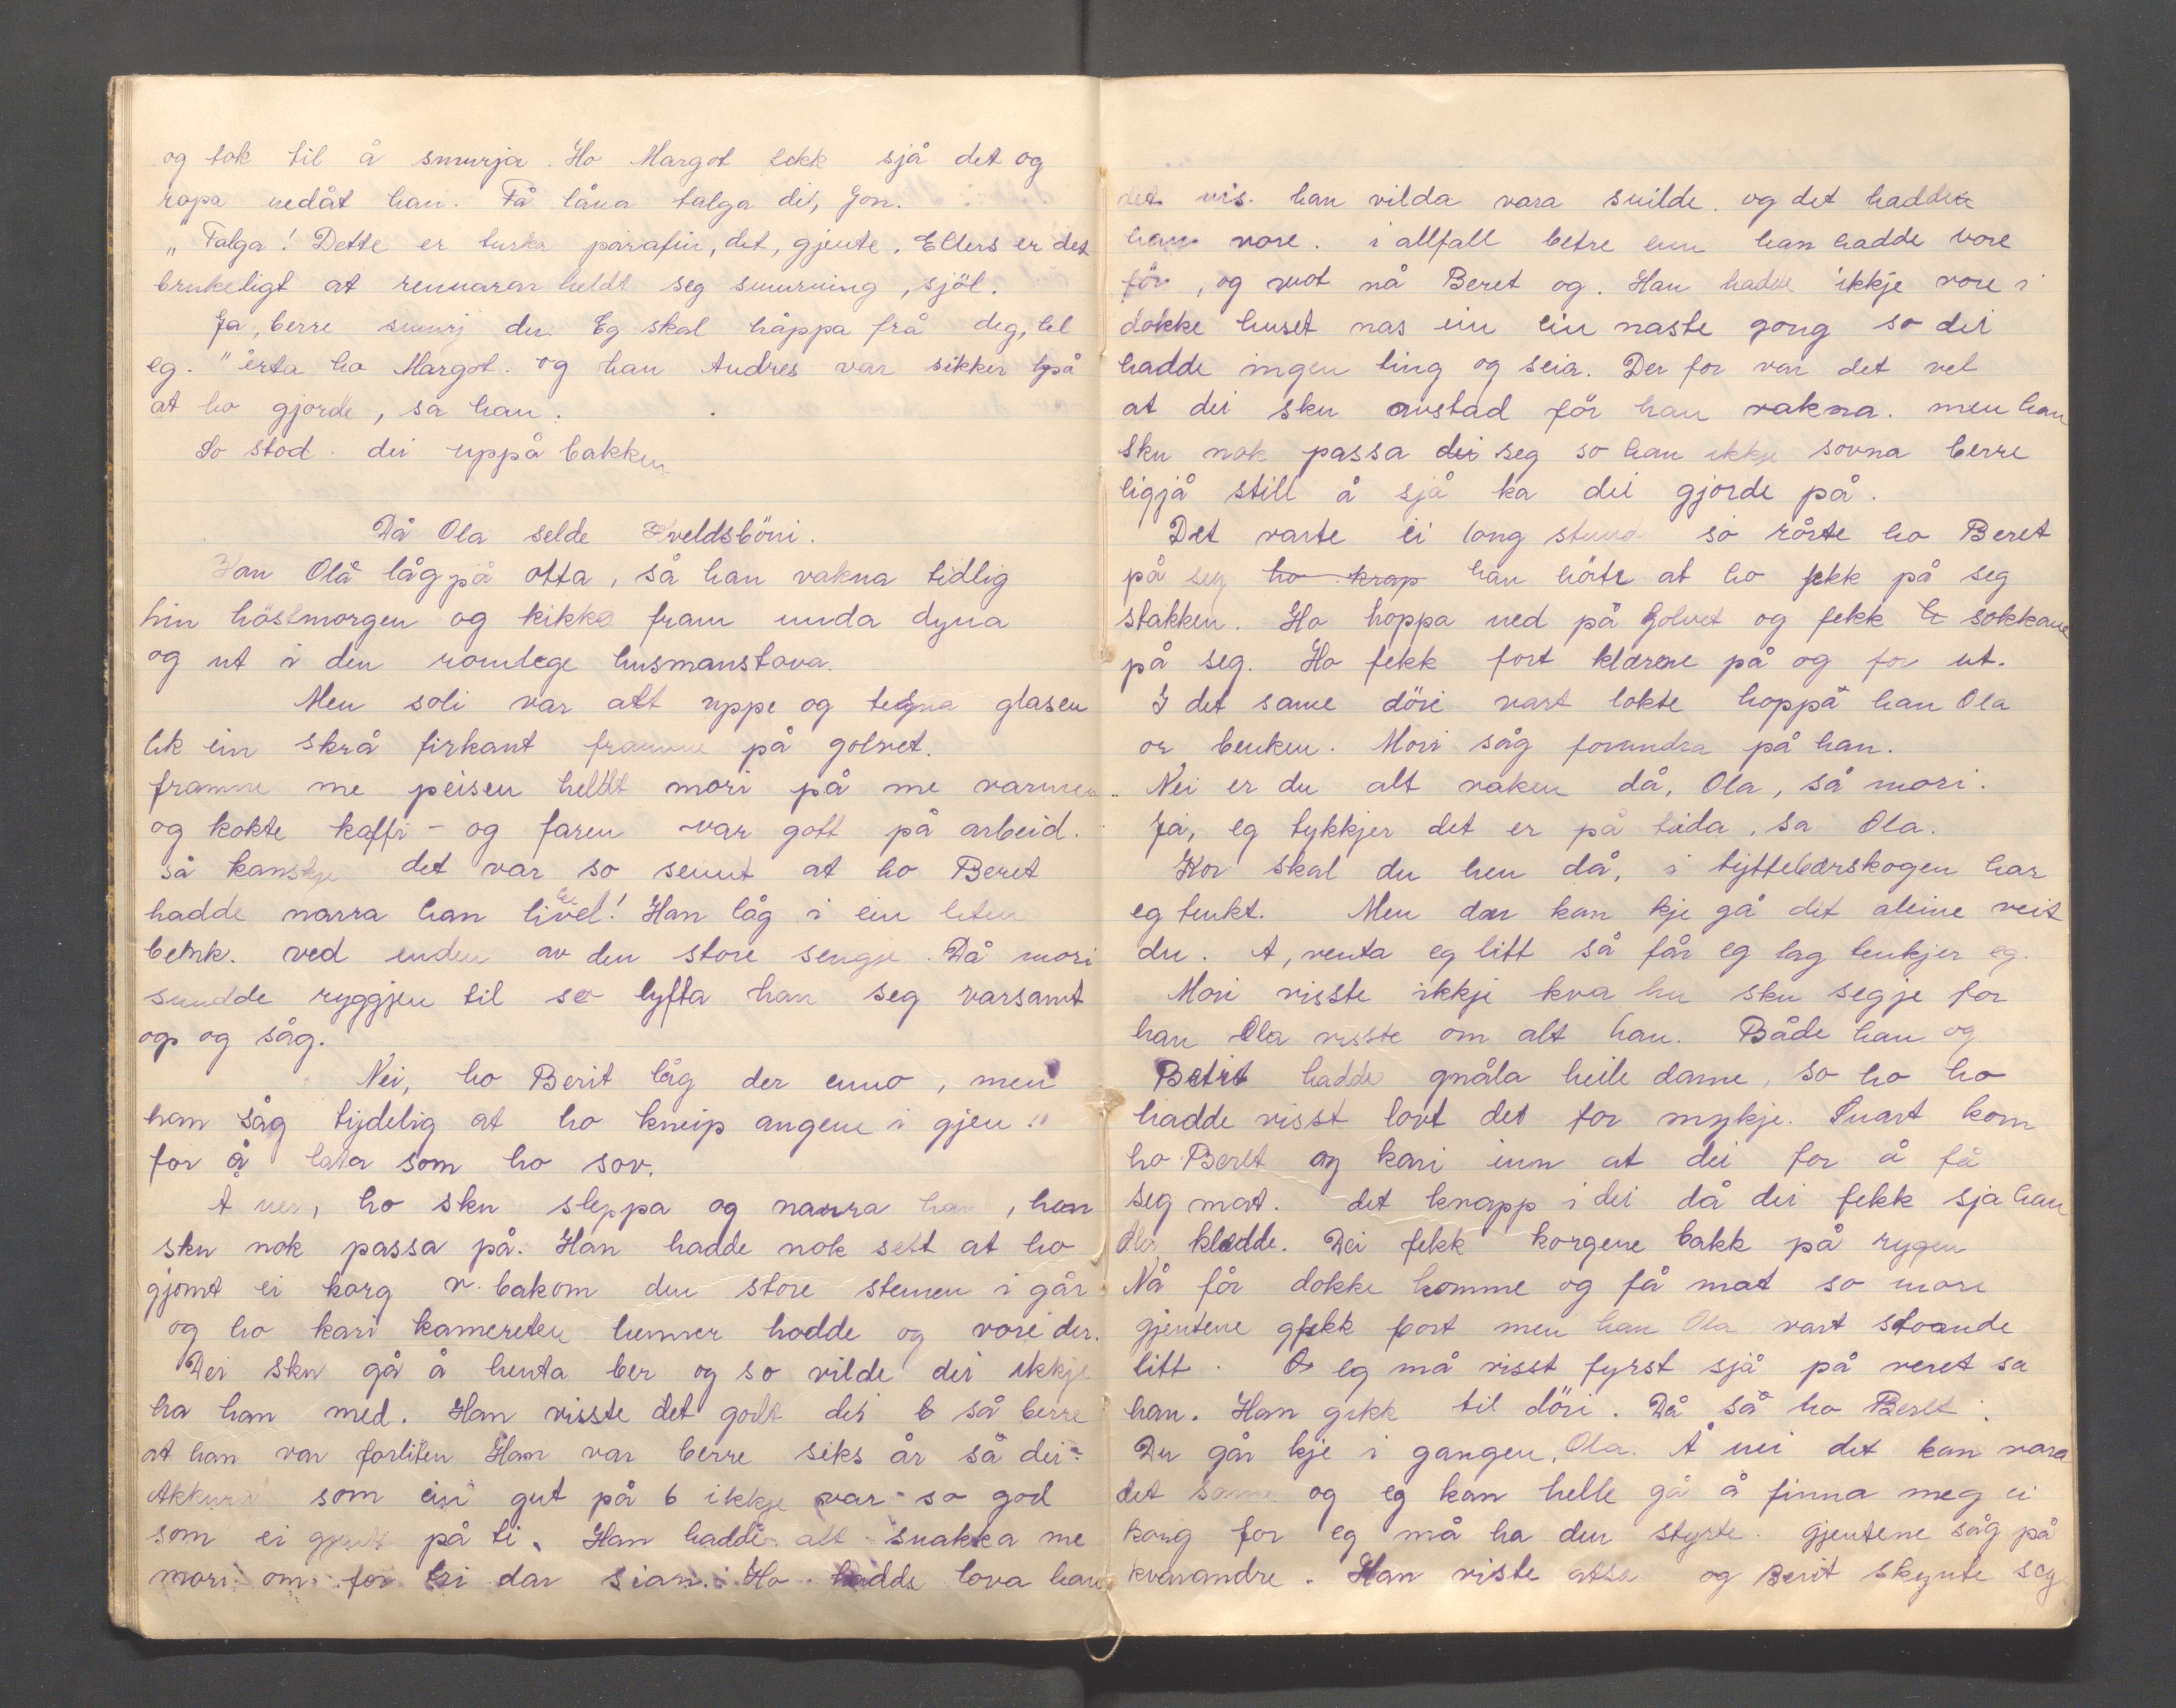 og tok til å smurja. Ho Margot fekk sjå det og
ropa nedåt han. Få låna talga di, Jon.
„Talga! Dette er turka parafin, det, gjente. Ellers er det
brukeligt at rennarar heldt seg smurning, sjöl.
Ja, berre smurj du. Eg skal håppa frå deg, lel
eg." erta ho Margot. og han Andres var sikker på
at ho gjorde, sa han.
So stod dei uppå bakken
Då Ola selde Kveldsböni.
Han Ola låg på otta, så han vakna tidlig
hin höstmorgen og kikka fram unda dyna
og ut i den romlege husmanstova.
Men soli var alt uppe og tegna glasen
lik ein skrå firkant framme på golvet.
framme me peisen heldt mori på me varmen
og kokte kaffi - og faren var gott på arbeid.
så kanskje det var so seint at ho Beret
hadde narra han livel! Han låg i ein liten
benk. ved enden av den store sengje. Då mori
snudde ryggjen til so lyfta han seg varsamt
op og såg.
Nei, ho Berit låg der enno, men
han såg tydelig at ho kneip augene i gjen
for å lata som ho sov.
Å nei, ho sku sleppa og narra han, han
sku nok passa på. Han hadde nok sett at ho
gjömt ei korg v. bakom den store steinen i går
og ho kari kamereten henner hadde og vore der.
Dei sku gå å henta ber og so vilde dei ikkje
ha han med. Han visste det godt dei b så berre
at han var forliten Han var berre seks år så dei
Akkurat som ein gut på 6 ikkje var so god
som ei gjente på ti. Han hadde alt snakka me
mori om for tri dar sian. Ho hadde lova han
det vis. han vilda vara snilde. og det hadde
han vore. i allfall betre enn han hadde vore
för, og mot nå Beret og. Han hadde ikkje vore i
dokke huset nas ein ein naste gong so dei
hadde ingen ting og seia. Der for var det vel
at dei sku avstad för han vakna. men han
sku nok passa dei seg so han ikkje sovna berre
ligjå still å sjå ka dei gjorde på.
Det varte ei long stund so rörte ho Beret
på seg ho krap han hörte at ho fekk på seg
stakken. Ho hoppa ned på golvet og fekk sokkane
på seg. Ho fekk fort klærene på og for ut.
I det same döri vart lokte hoppa han Ola
or benken. Mori såg forundra på han.
Nei er du alt vaken då, Ola, så mori.
Ja, eg tykkjer det er på tida, sa Ola.
Kor skal du hen då, i tyttebærskogen har
eg tenkt. Men du kan kje gå dit aleine veit
du. A, venta eg litt så får eg lag tenkjer eg.
Mori visste ikkji kva hu sku segje for
han Ola visste om alt han. Både han og
Berit hadde gnåla heile dame, so ho ho
hadde visst lovt det for mykje. Snart kom
ho Beret og kari inn at dei for å få
seg mat. det knapp i dei då dei fekk sja han
Ola kledde. Dei fekk korgene bakk på rygen
Nå får dokke komme og få mat so mori
gjentene gjekk fort men han Ola vart stoande
litt. O eg må visst fyrst sjå på veret sa
han. Han gekk til döri. Då så ho Beret
Du går kje i gangen, Ola. Å nei det kan vara
det same og eg kan helle gå å finna meg ei
korg for eg må ha den styste. gjentene såg på
kvarandre. Han viste atte og Berit skynte seg